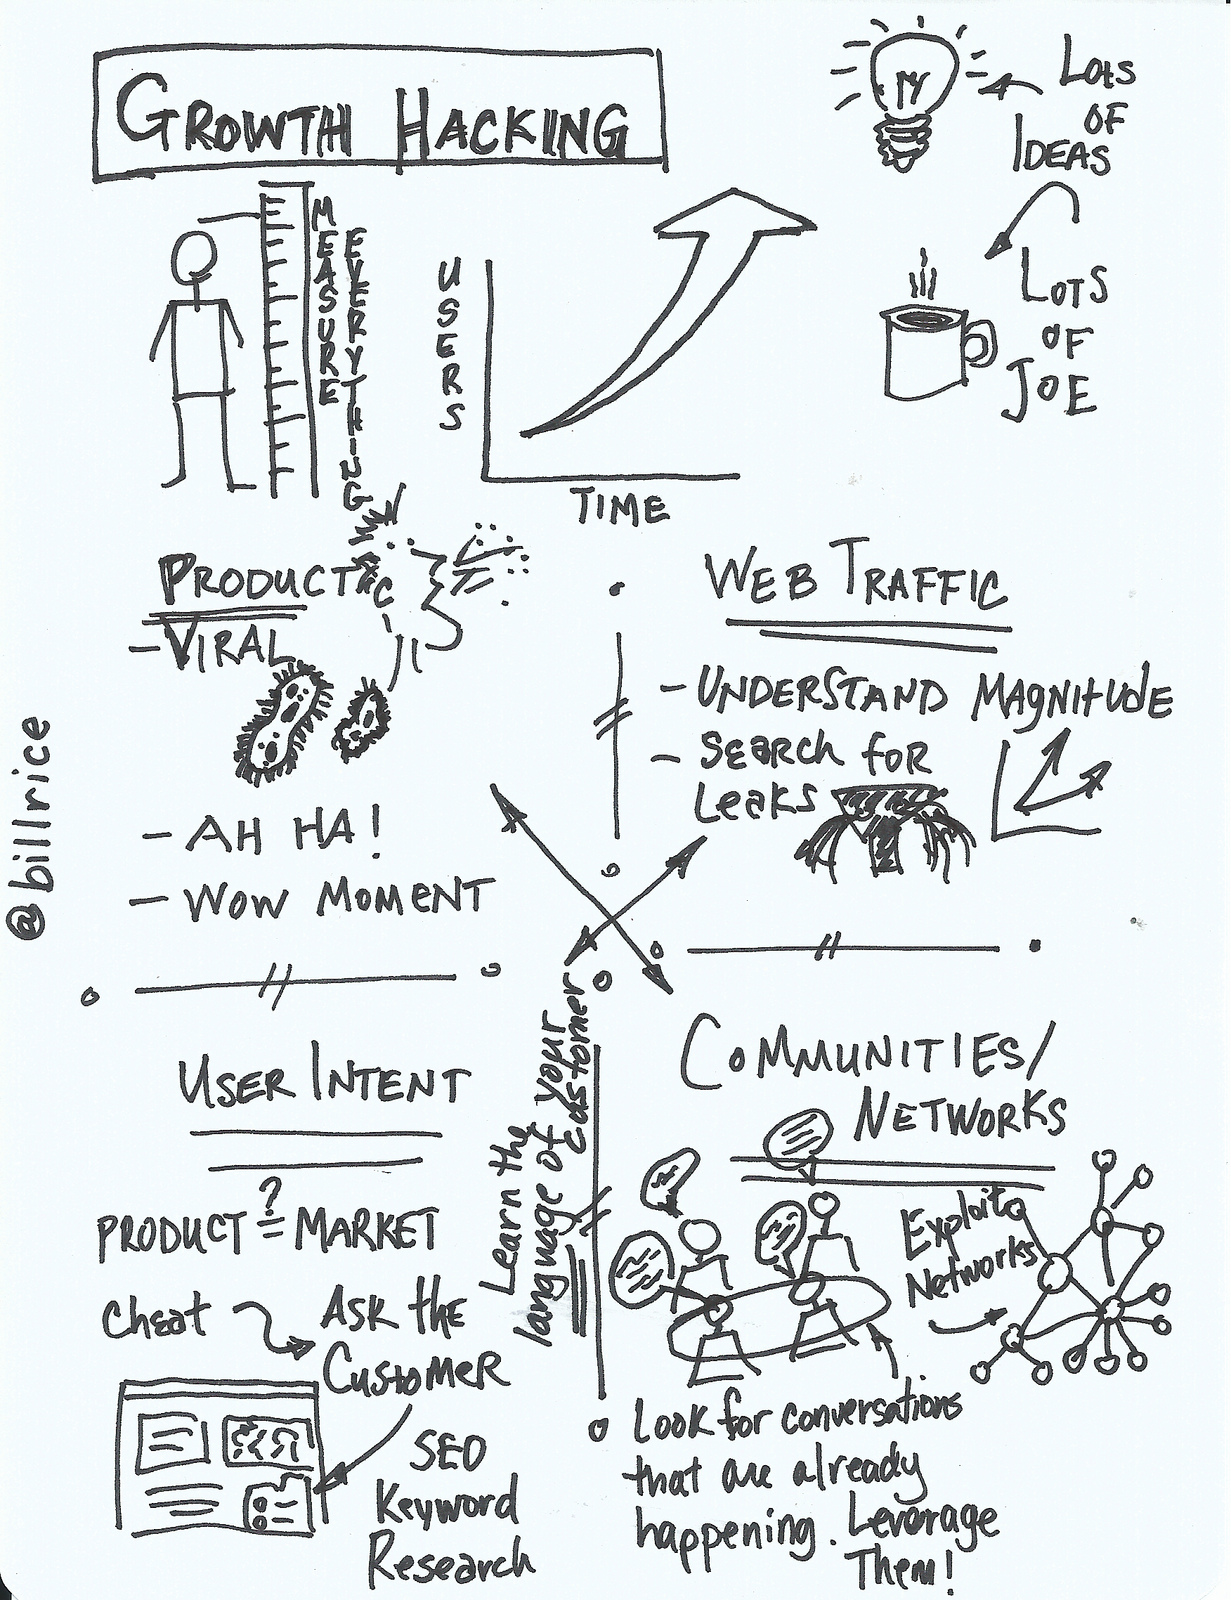 GROWTH HACKING
LOTS
OF
IDEAS
MEASURE
EVERYTHING
USERS
TIME
LOTS
OF
JOE
PRODUCT
- VIRAL
- AH HA!
- WOW MOMENT
WEB TRAFFIC
- UNDERSTAND MAGNITUDE
- SEARCH FOR
LEAKS
@billrice
USER INTENT
PRODUCT ?= MARKET
Cheat
ASK the
CUSTOMER
SEO
Keyword
Research
Learn the
language of your
customer
COMMUNITIES/
NETWORKS
Exploit
Networks
Look for conversations
that are already
happening. Leverage
Them!